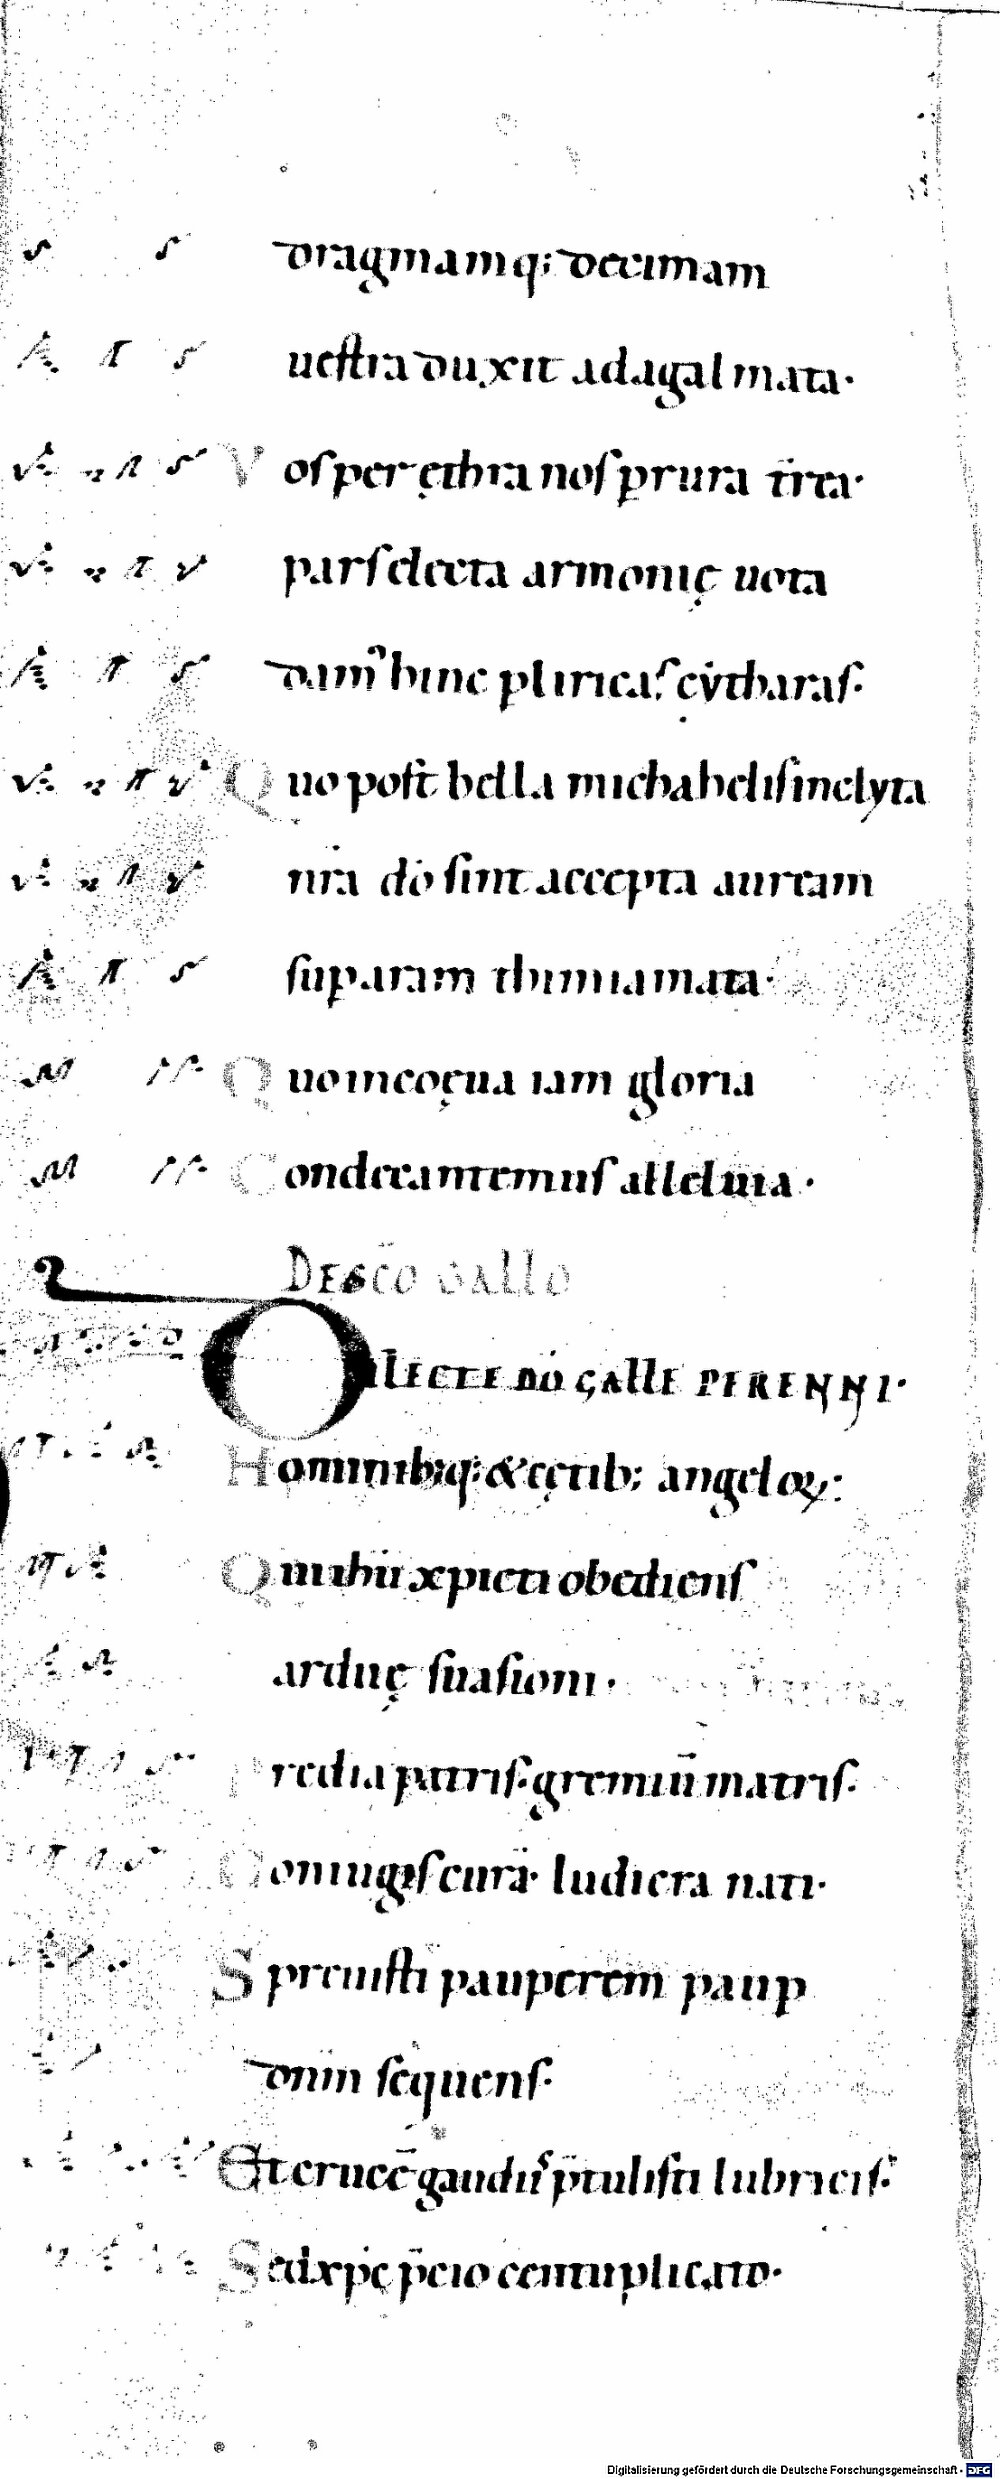 dragmamq; decimam
uestra duxit ad agalmata·
Vos per ęthra nos p rura t̄r̄ea·
pars electa armonię uota
dam' hinc pliricas cẏtharas·
Quo post bella michahelis inclyta
nr̄a dō sint accepta auream
sup aram thimiamata·
Quo in coęua iam gloria
Condecantemus alleluia·
DE SC̄O GALLO
Dilecte dō galle perenni·
Hominibusq; & cętib; angeloꝝ:
Qui ihū xpicti obediens
arduę suasioni·
Predia patris· gremiū matris·
Coniugis curā· ludicra nati·
Spreuisti pauperem paup
dn̄m sequens·
Et crucē gaudiis p̄tulisti lubricis·
Sed xp̄c p̄cio centuplicato·
Digitalisierung gefördert durch die Deutsche Forschungsgemeinschaft - DFG